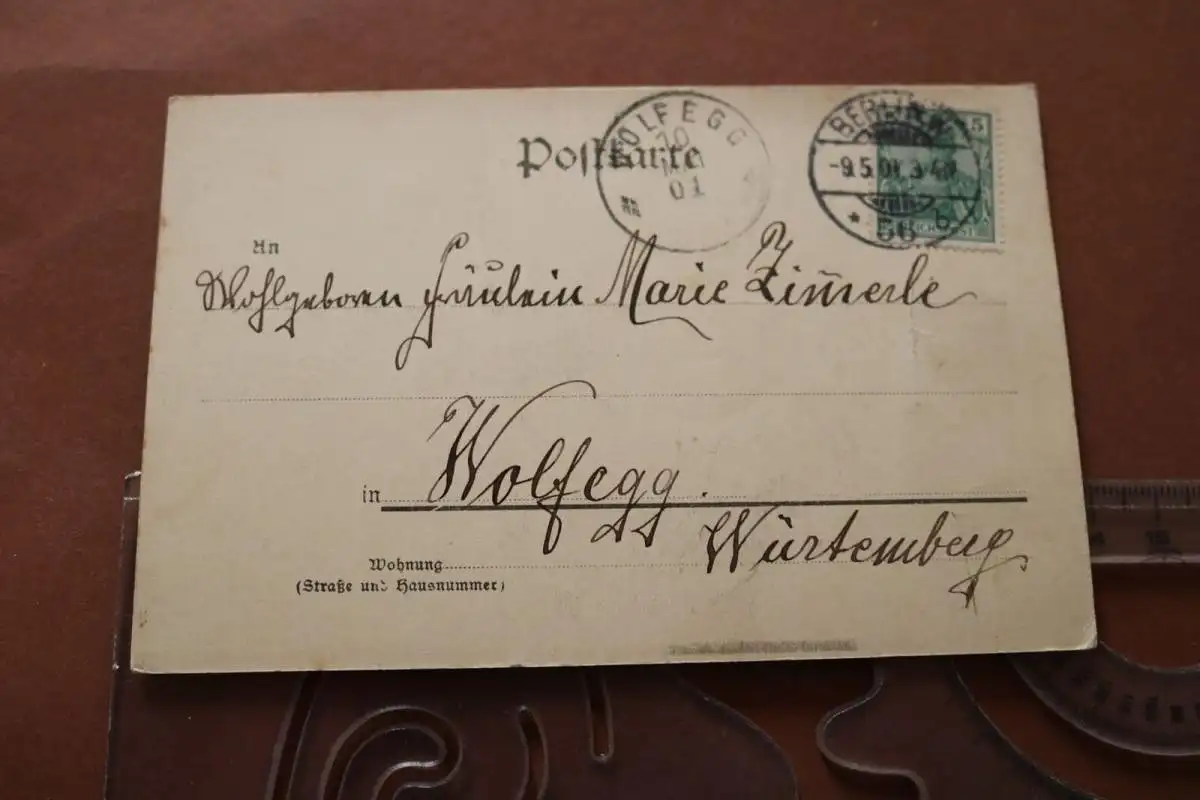 Postkarte
WOLFEGG
10
01
BERLIN W
-9.5.01. 3-4N
* 56 b.
5
An
Wohlgeboren Fräulein Marie Zim̅erle
in Wolfegg.
Würtemberg
Wohnung
(Straße und Hausnummer)